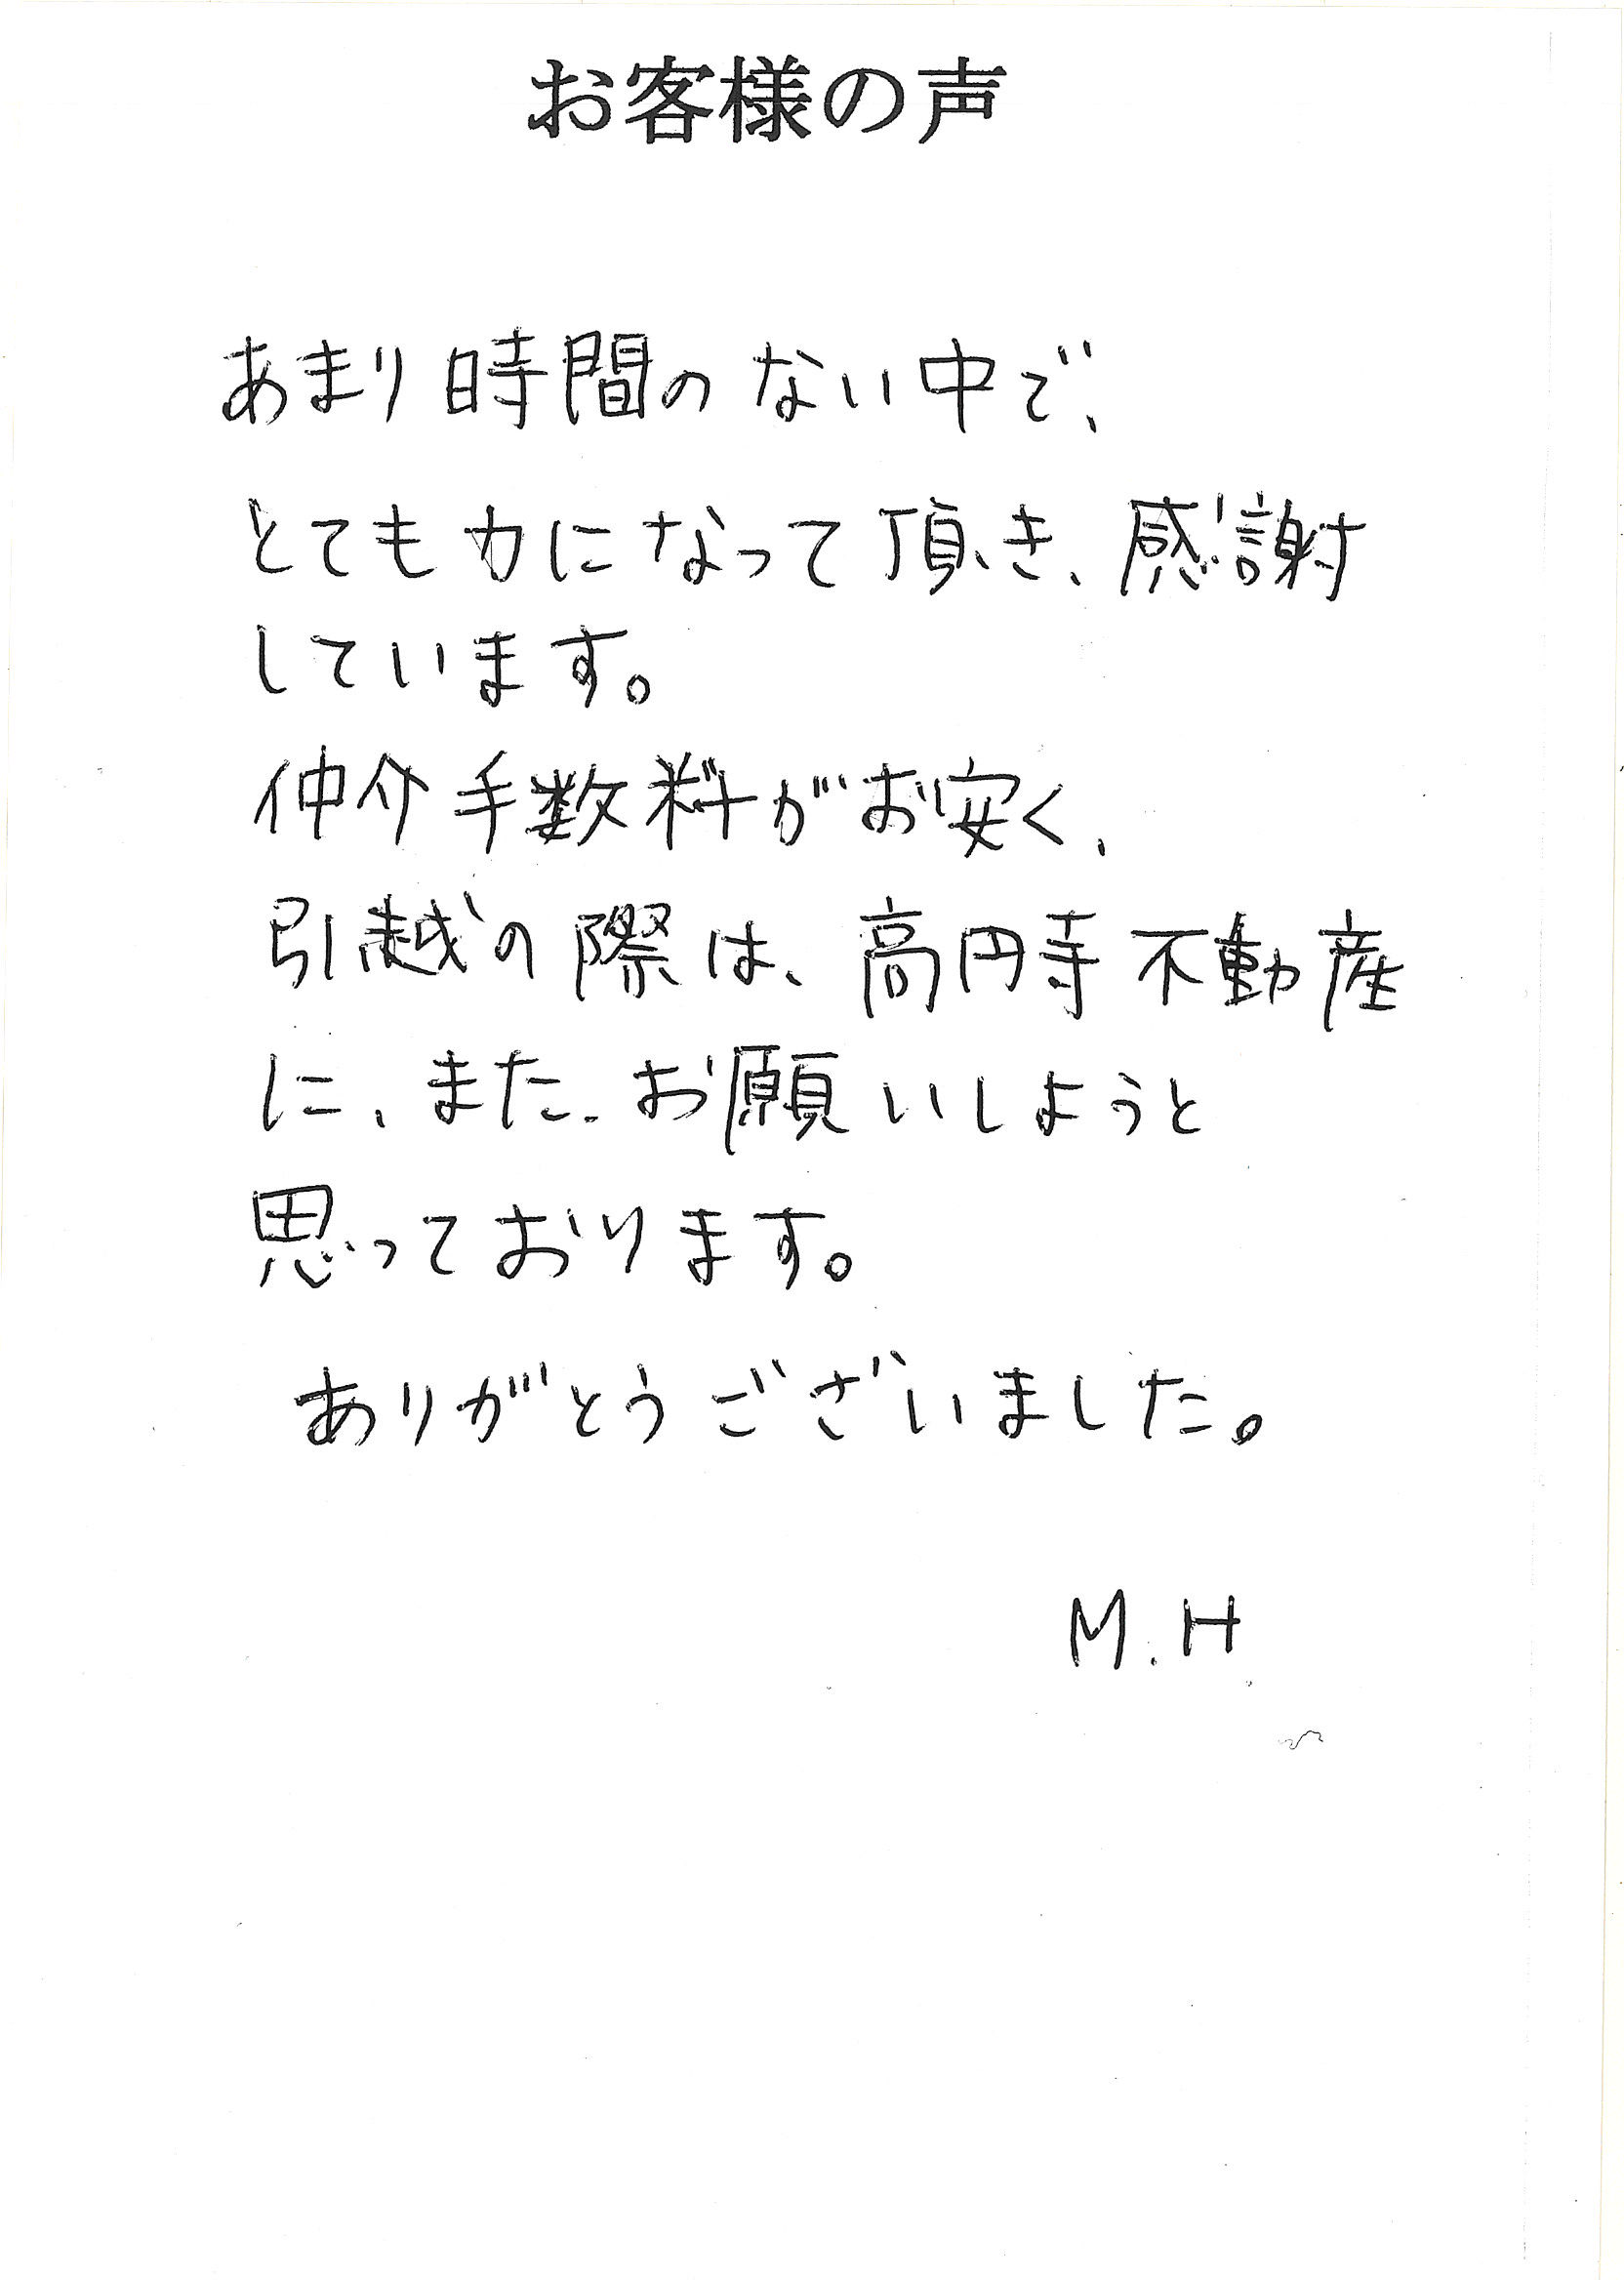 お客様の声
あまり時間のない中で、
とても力になって頂き、感謝
しています。
仲介手数料がお安く、
引越の際は、高円寺不動産
に、また、お願いしようと
思っております。
ありがとうございました。
M.H